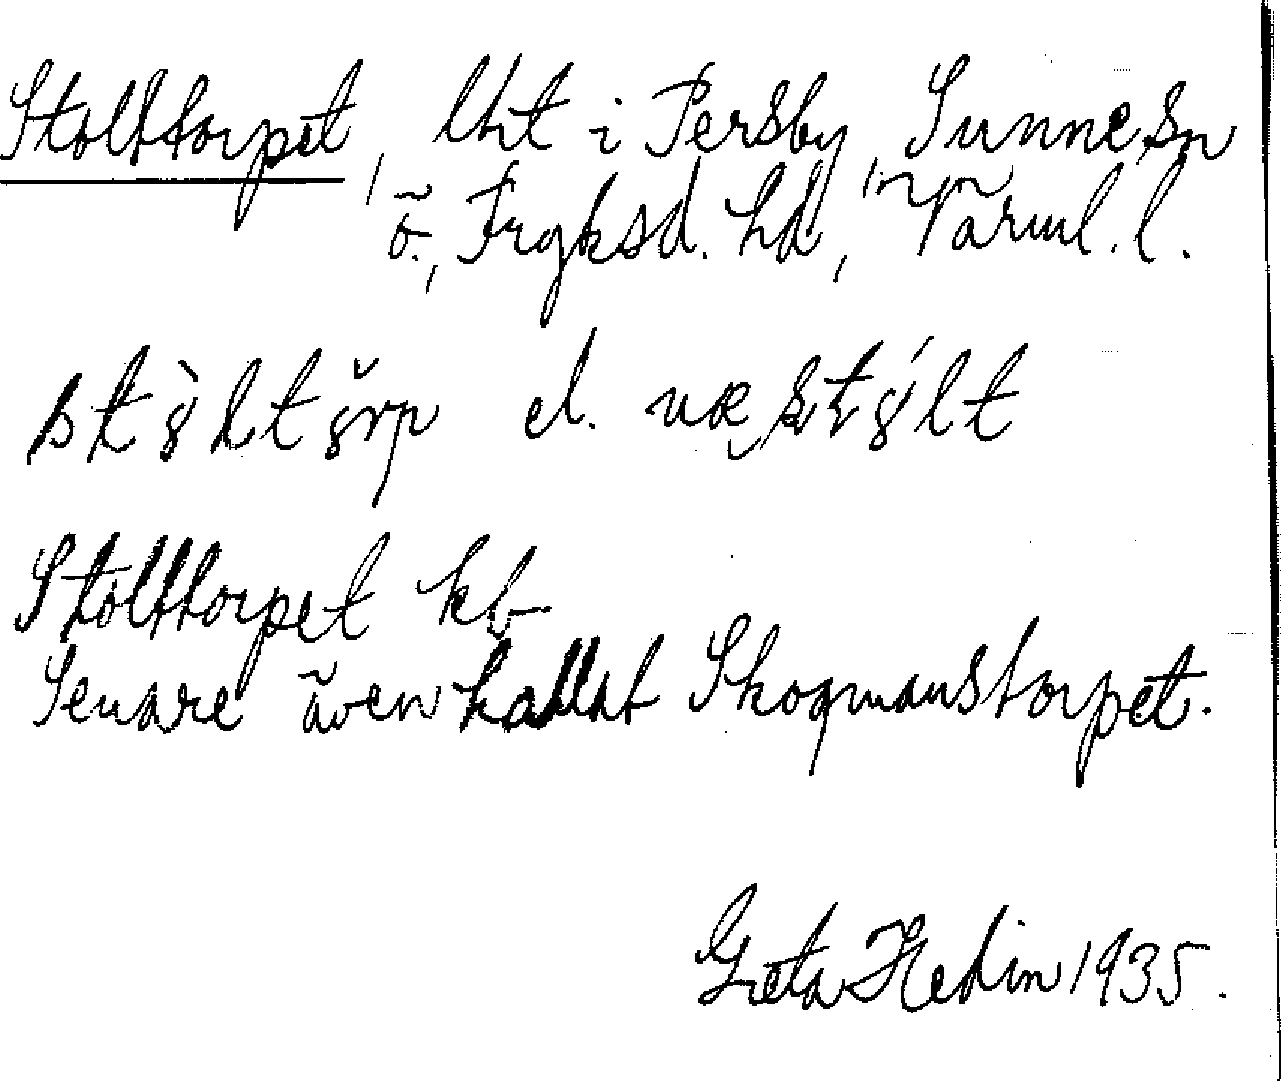 Stolttorpet, lht i Persby, Sunne sn
ö., Fryksd. hd, Värml. l.
el.
Stolttorpet kb
Senare även kallat Skogmanstorpet.
Greta Hedin 1935.